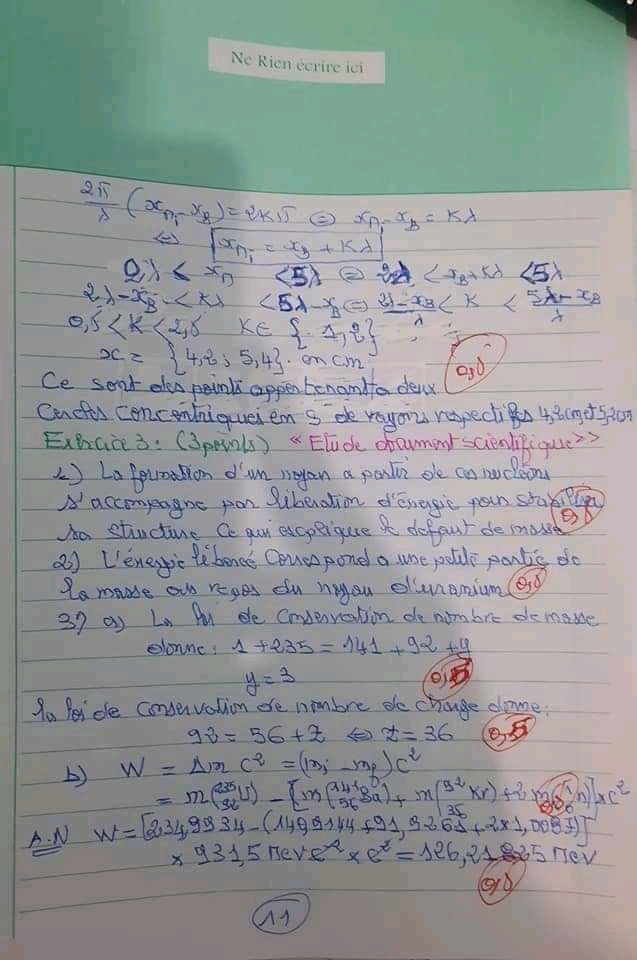 Ne Rien écrire ici
2π/λ (x_M₁ - x_B) = 2Kπ ⇔ x_M - x_B = Kλ
⇔ x_M₁ = x_B + Kλ
2λ < x_M < 5λ ⇔ 2λ < x_B + Kλ < 5λ
2λ - x_B < Kλ < 5λ - x_B ⇔ (2λ - x_B)/λ < K < (5λ - x_B)/λ
0,5 < K < 2,5 K ∈ { 1, 2 }
x = { 4,2 ; 5,4 } en cm 0,5
Ce sont des points appartenant à deux
Cercles concentriques en S de rayons respectifs 4,2cm et 5,2cm
Exercice 3 : (3 points) « Etude document scientifique >>
1) La formation d'un noyau a partir de ces nucléons
s'accompagne par libération d'énergie pour stabiliser
sa structure Ce qui explique le défaut de masse 0,5
2) L'énergie libéré correspond a une petite partie de
la masse au repos du noyau d'uranium 0,5
3) a) La loi de conservation de nombre de masse
donne : 1 + 235 = 141 + 92 + y
y = 3 0,5
la loi de conservation de nombre de charge donne :
92 = 56 + Z ⇔ Z = 36 0,5
b) W = Δm c² = (mi - mf) c²
= m(²³⁵₉₂U) - [m(¹⁴¹₅₆Ba) + m(⁹²₃₆Kr) + 2 m(¹₀n)] × c²
A.N W = [234,9934 - (1499144 + 91,9261 + 2×1,0087)]
× 931,5 MeV c⁻² × c² = 126,21825 MeV
0,5
11